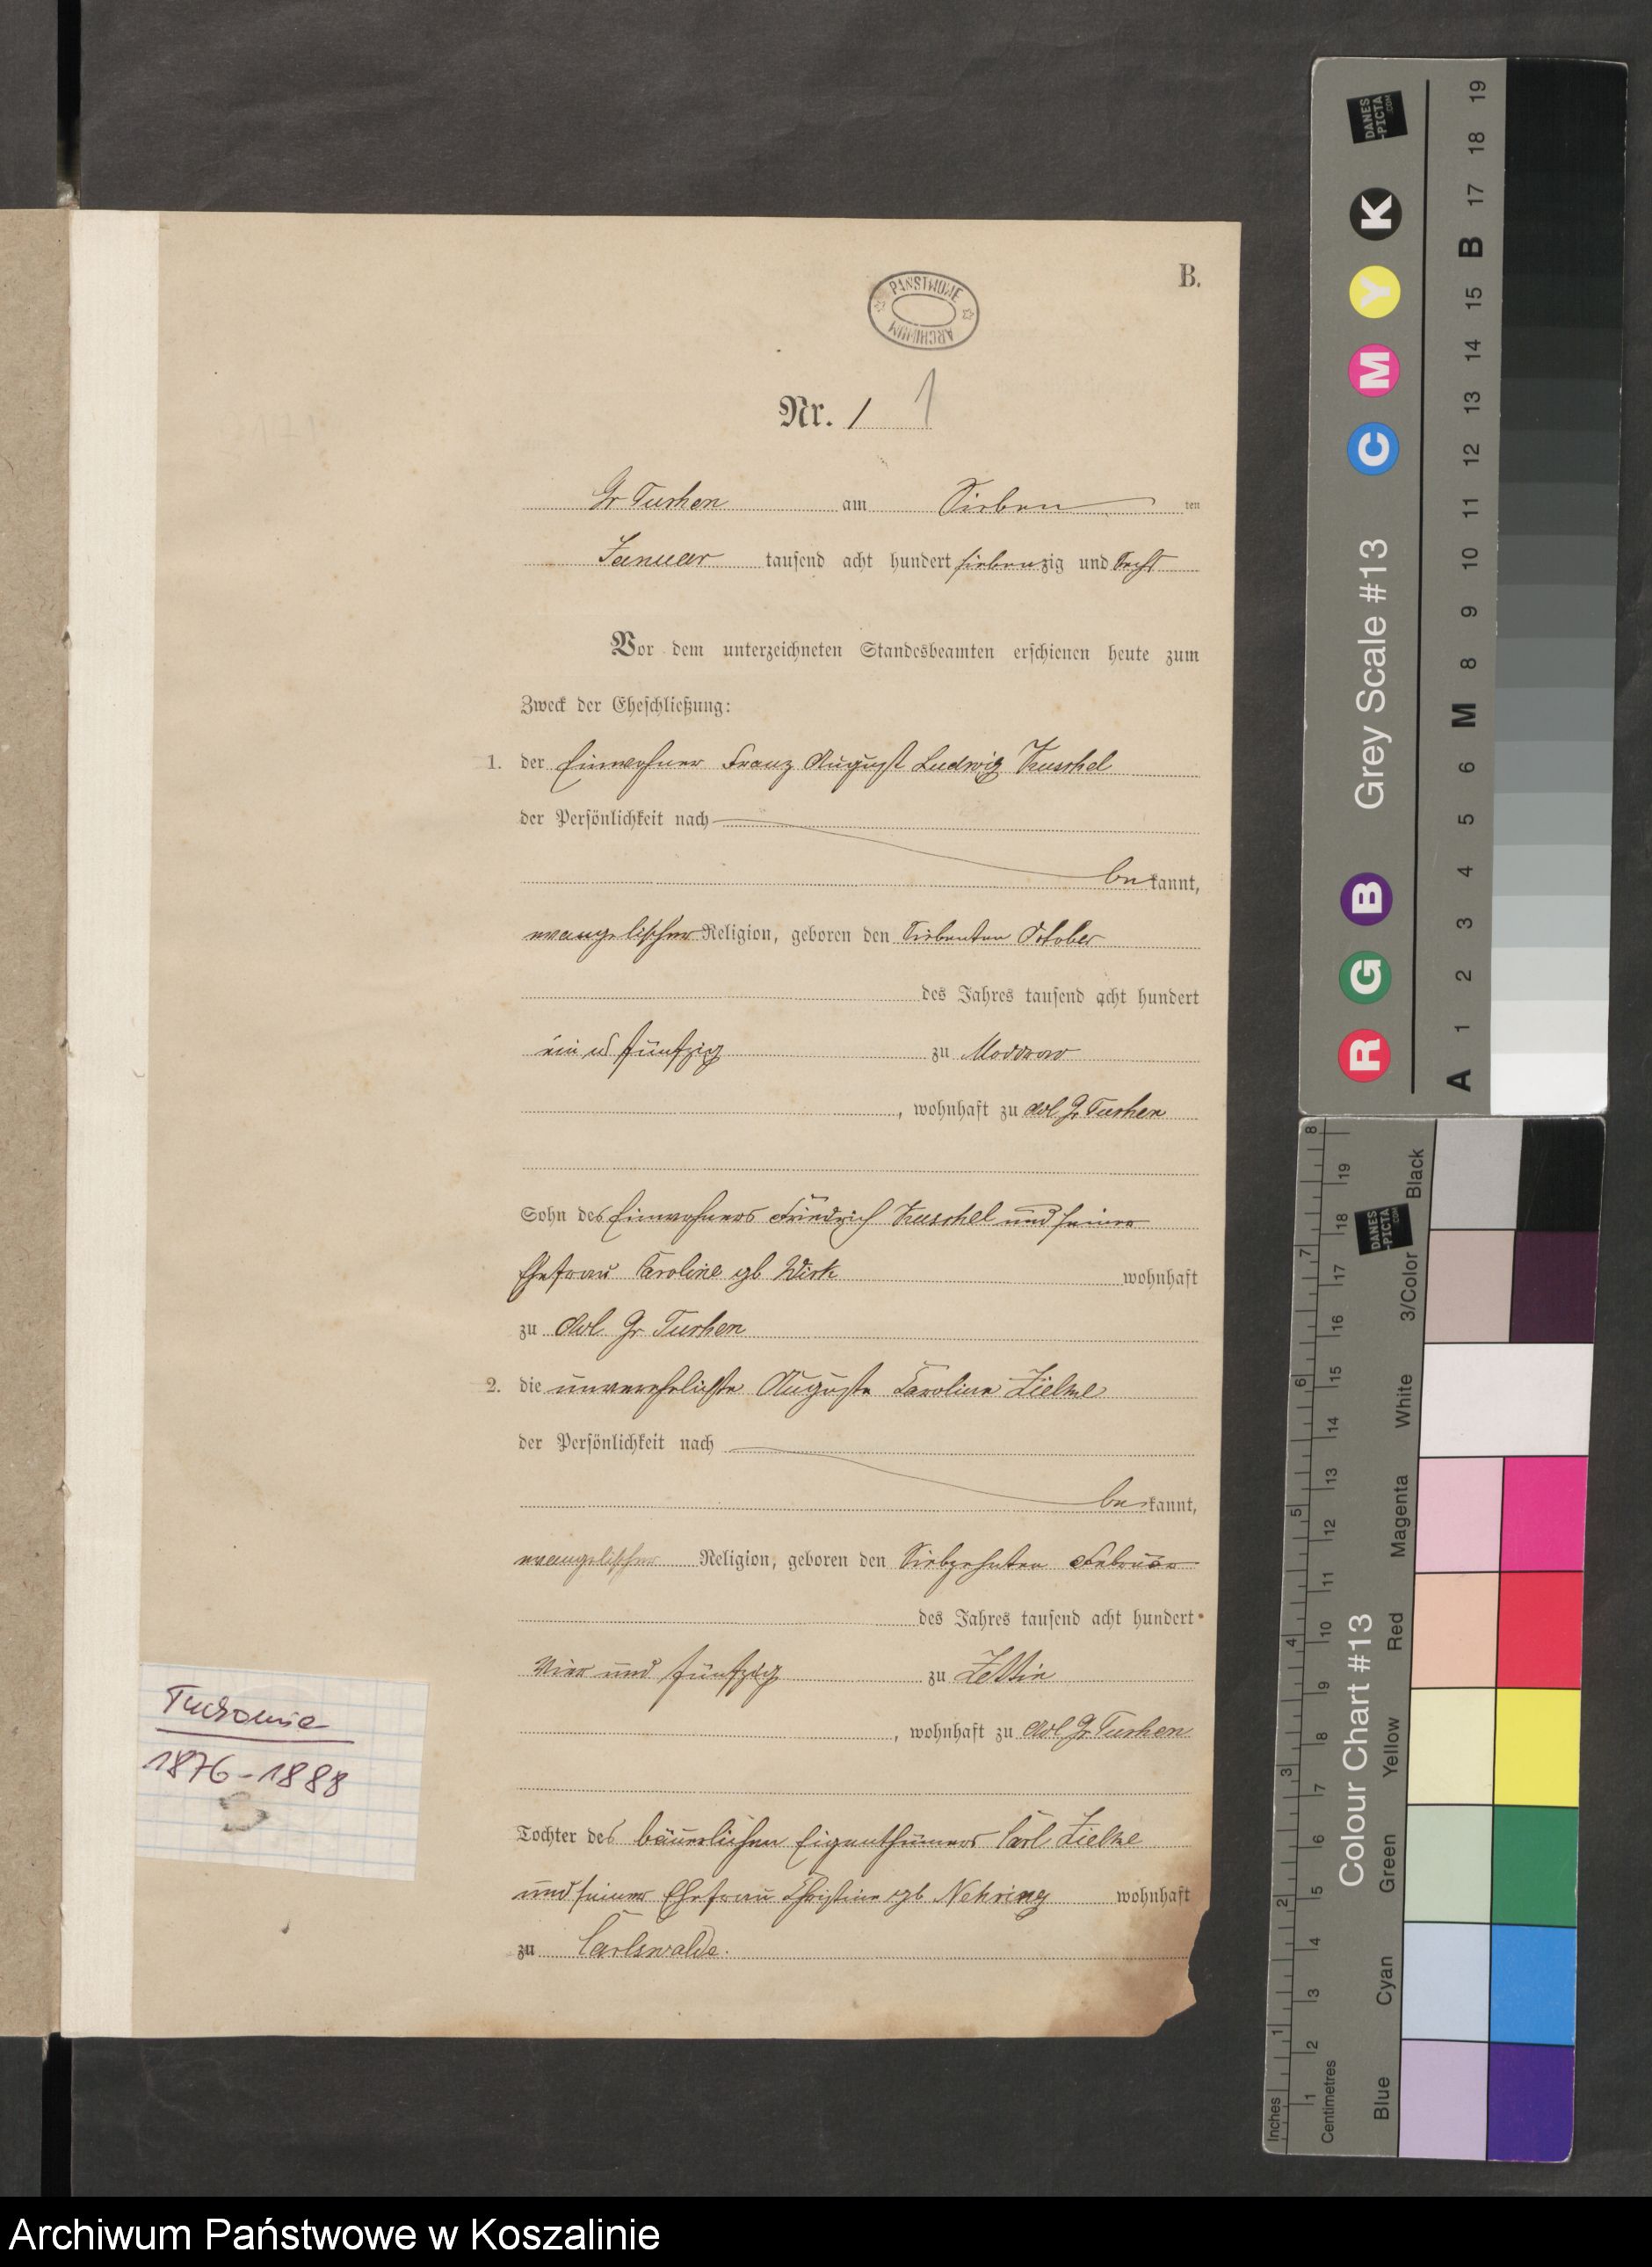 B.
PAŃSTWOWE
ARCHIWUM
Nr. 1 1
Gr Tuchen am Sieben ten
Januar tausend acht hundert siebenzig und sechs
Vor dem unterzeichneten Standesbeamten erschienen heute zum
Zweck der Eheschließung:
1. der Einwohner Franz August Ludwig Kuschel
der Persönlichkeit nach
be kannt,
evangelischer Religion, geboren den Siebenten October
des Jahres tausend acht hundert
ein u fünfzig zu Moddrow
, wohnhaft zu Adl. Gr Tuchen
Sohn des Einwohners Friedrich Kuschel und seiner
Ehefrau Caroline gb Wirk wohnhaft
zu Adl. Gr Tuchen
2. die unverehelichte Auguste Caroline Zielke
der Persönlichkeit nach
be kannt,
evangelischer Religion, geboren den Siebzehnten Februar
des Jahres tausend acht hundert
vier und fünfzig zu Zettin
, wohnhaft zu Adl Gr Tuchen
Tochter des bäuerlichen Eigenthümers Carl Zielke
und seiner Ehefrau Christine gb. Nehring wohnhaft
zu Carlswalde.
Tuchomie
1876-1888
DANES
-PICTA
.COM
Grey Scale #13
R G B C M Y K
A 1 2 3 4 5 6 M 8 9 10 11 12 13 14 15 B 17 18 19
DANES
-PICTA
.COM
Colour Chart #13
Blue Cyan Green Yellow Red Magenta White 3/Color Black
Inches 1 2 3 4 5 6 7 8
Centimetres 1 2 3 4 5 6 7 8 9 10 11 12 13 14 15 16 17 18 19
Archiwum Państwowe w Koszalinie